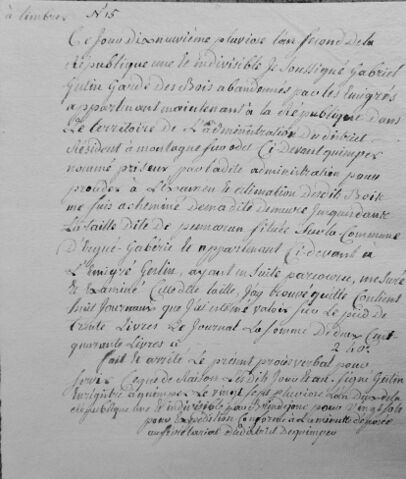 à timbrer N 15
Ce jour dix neuvieme pluviose l'an second de la
République une et indivisible Je soussigné Gabriel
Gutin Garde des Bois abandonnés par les Emigrés
appartenant maintenant a la République dans
Le territoire de L'administration du district
Résident à montagne sur odet Ci Devant quimper
nommé priseur par ladite administration pour
procéder a L'Examen et estimation desdit Bois
me suis acheminé de madite demeure Jusque dans
La taille dite de penn Situé Sur la Commune
D'Ergué Gabéric et appartenant Ci-devant à
L'Emigré Geslin, ayant en suite parcouru, mesuré
& Examiné Cette dite taille, J'ay trouvé qu'elle Contient
huit Journaux que j'ai estimé valoir sur le pied de
trente Livres Le Journal La somme De deux Cent
quarante Livres 240.
fait et arrêté Le présent procès verbal pour
servir Ce que de Raison Lesdits Jour et an. Signé Gutin
Enregistré a quimper Le vingt sept pluviose L'an Deux de la
république une et indivisible par pour vingt sols
pour Expédition Conforme a La minutte déposée
au secretariat du district de quimper